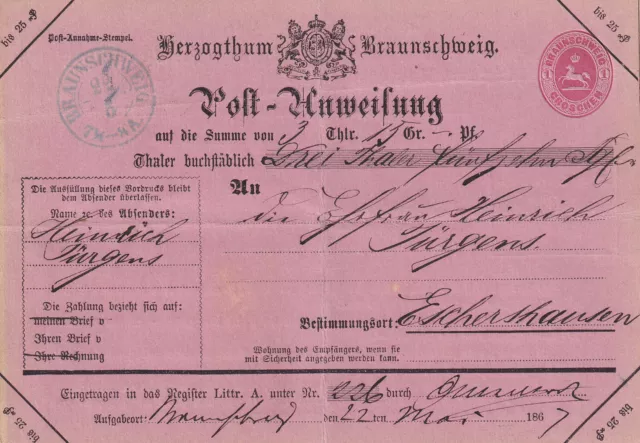 bis 25 ₰
bis 25 ₰
Post-Annahme-Stempel.
Herzogthum Braunschweig.
BRAUNSCHWEIG
BRAUNSCHWEIG
1 1
GROSCHEN
Post-Anweisung
auf die Summe von 3 Thlr. 15 Gr. — Pf.
Thaler buchstäblich Drei Thaler fünfzehn
An
die Ehefrau Heinrich
Jürgens
Die Ausfüllung dieses Vordrucks bleibt
dem Absender überlassen.
Name des Absenders:
Heinrich
Jürgens
Die Zahlung bezieht sich auf:
meinen Brief v
Ihren Brief v
Ihre Rechnung
Bestimmungsort: Eschershausen
Wohnung des Empfängers, wenn sie
mit Sicherheit angegeben werden kann.
Eingetragen in das Register Littr. A. unter Nr. 226 durch
Aufgabeort: den 22 ten Mai 1867
bis 25 ₰
bis 25 ₰